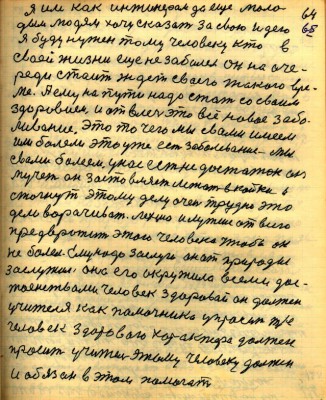 64
Я им как интинерам да еще моло-
дым людям хочу сказат за свою идею 65
Я буду нужен тому человеку кто в
своей жизни еще не забалел он на оче-
реди стоит ждет своего такого вре-
ме. А ему на пути надо стат со своим
здоровием и отвлеч это всё новое забо-
ливание, Это то чего мы свами имеем
им болеем это уже ест заболевание мы
свами болеем, унас ест недостаток он
мучет он заставляет лежат в койки и
стогнут этому делу очен трудно это
дело ворачиват. легко и лутше от всего
предвратит этого человека чтобы он
не болел. Слу надо заслуги она от природы
заслужин она его окружила всеми дос-
тоенствами человек здоровай он должен
учителя как помочника упросит т/к
человек здорового характера должен
просит учител этому человеку должен
и обязан в этом помогат